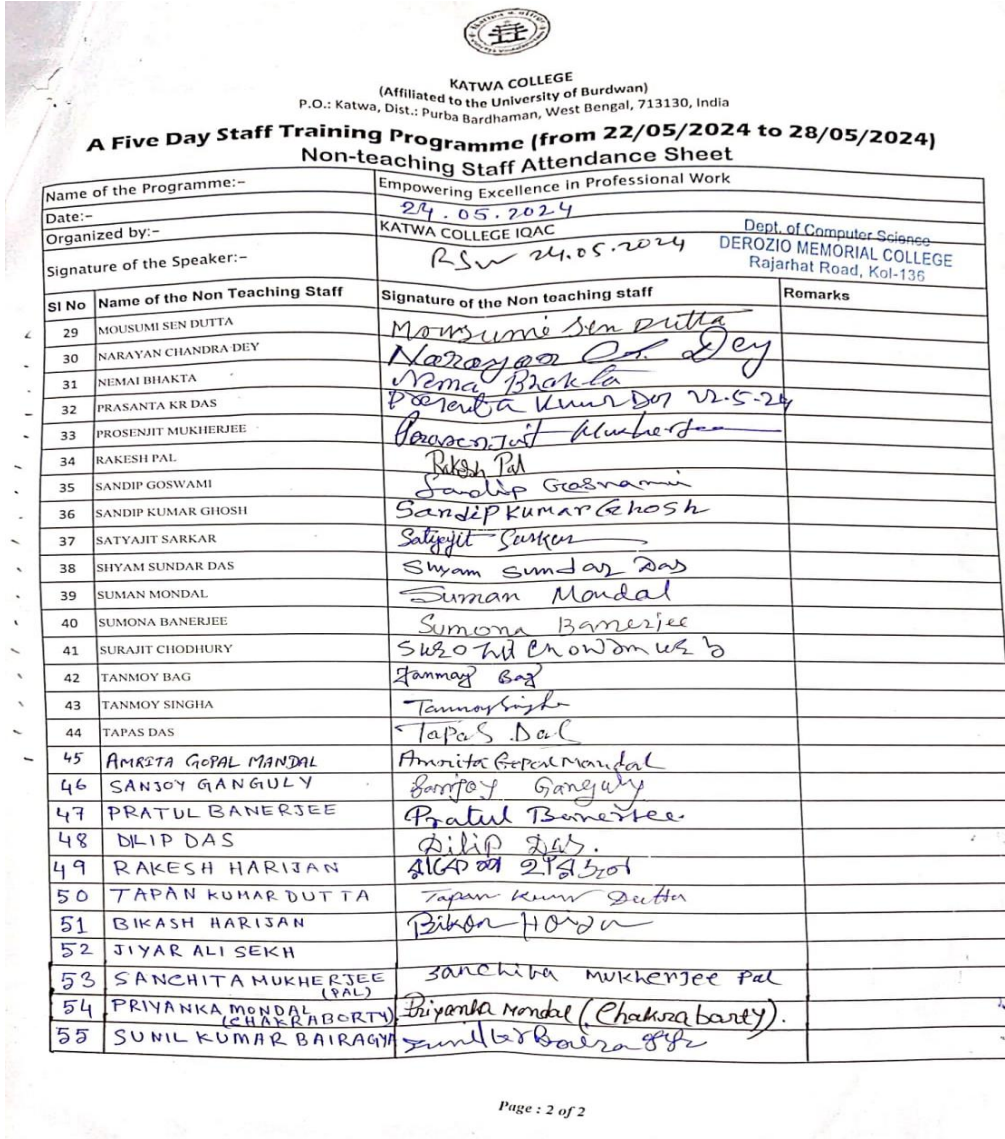 KATWA COLLEGE
(Affiliated to the University of Burdwan)
P.O.: Katwa, Dist.: Purba Bardhaman, West Bengal, 713130, India
A Five Day Staff Training Programme (from 22/05/2024 to 28/05/2024)
Non-teaching Staff Attendance Sheet
Name of the Programme:- Empowering Excellence in Professional Work
Date:- 24.05.2024
Organized by:- KATWA COLLEGE IQAC
Signature of the Speaker:- 24.05.2024
Dept. of Computer Science
DEROZIO MEMORIAL COLLEGE
Rajarhat Road, Kol-136
Sl No Name of the Non Teaching Staff Signature of the Non teaching staff Remarks
29 MOUSUMI SEN DUTTA Mousumi Sen Dutta
30 NARAYAN CHANDRA DEY Narayan Ch. Dey
31 NEMAI BHAKTA Nemai Bhakta
32 PRASANTA KR DAS Prasanta Kumar Das 22-5-24
33 PROSENJIT MUKHERJEE Prosenjit Mukherjee
34 RAKESH PAL Rakesh Pal
35 SANDIP GOSWAMI Sandip Goswami
36 SANDIP KUMAR GHOSH Sandip Kumar Ghosh
37 SATYAJIT SARKAR Satyajit Sarkar
38 SHYAM SUNDAR DAS Shyam Sundar Das
39 SUMAN MONDAL Suman Mondal
40 SUMONA BANERJEE Sumona Banerjee
41 SURAJIT CHODHURY
42 TANMOY BAG Tanmay Bag
43 TANMOY SINGHA Tanmoy Singha
44 TAPAS DAS Tapas Das
45 AMRITA GOPAL MANDAL Amrita Gopal Mandal
46 SANJOY GANGULY Sanjoy Ganguly
47 PRATUL BANERJEE Pratul Banerjee.
48 DILIP DAS Dilip Das.
49 RAKESH HARIJAN
50 TAPAN KUMAR DUTTA Tapan Kumar Dutta
51 BIKASH HARIJAN
52 JIYAR ALI SEKH
53 SANCHITA MUKHERJEE (PAL) Sanchita Mukherjee Pal
54 PRIYANKA MONDAL (CHAKRABORTY) Priyanka Mondal (Chakraborty).
55 SUNIL KUMAR BAIRAGYA
Page : 2 of 2